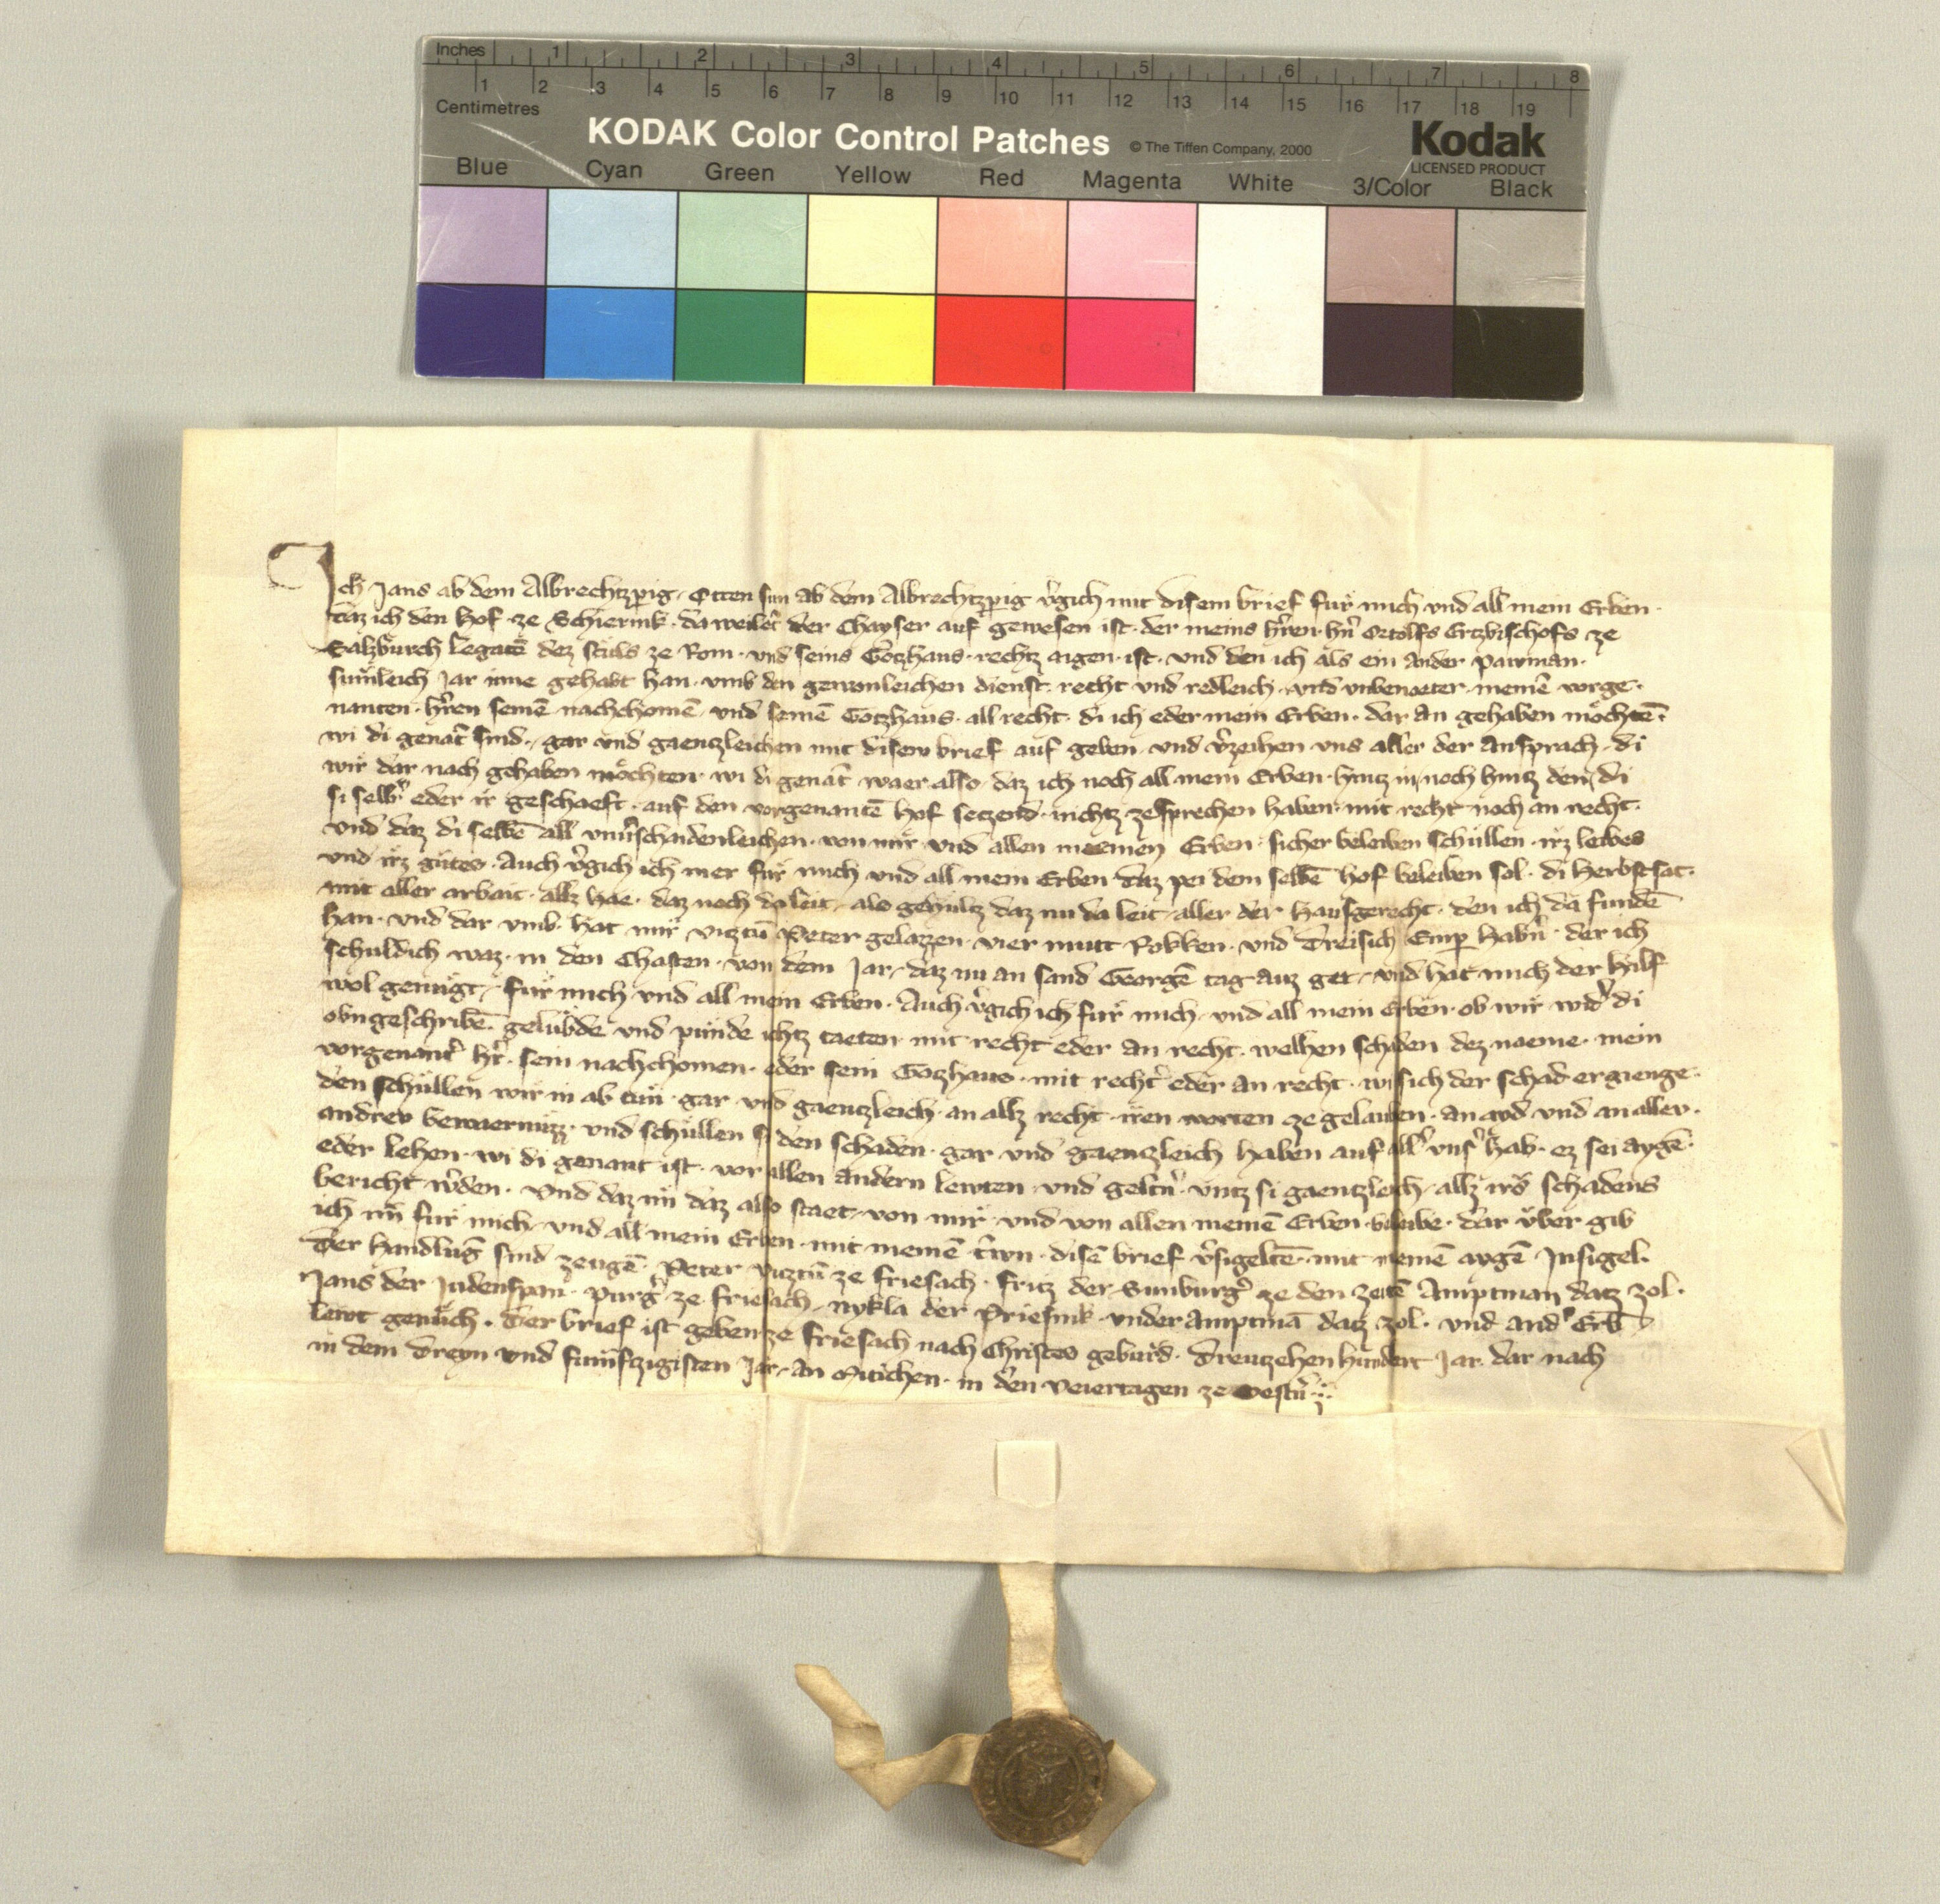 Inches 1 2 3 4 5 6 7 8
1 2 3 4 5 6 7 8 9 10 11 12 13 14 15 16 17 18 19
Centimetres
KODAK Color Control Patches © The Tiffen Company, 2000 Kodak
LICENSED PRODUCT
Blue Cyan Green Yellow Red Magenta White 3/Color Black
Ich Jans ab dem Albrechtzperig Otten sun ab dem Albrechtzperig v̾gich mit disem brief fur mich vnd all mein Erben
daz ich den hof ze Schierink da weilēt der Chayser auf gewesen ist der meins h̾ren hn̄ Ortolfs Ertzbischofs ze
Saltzburch Legatē dez stuls ze Rom vnd seins Gotzhaus rechtz aigen ist vnd den ich als ein ander pawman
sumleich Jar inne gehabt han vmb den gewonleichen dienst recht vnd redleich vnd vnbenoeter meinē vorge
nanten h̾ren seinē nachchomē vnd seinē Gotzhaus all recht di ich eder mein Erben dar an gehaben mochtē
wi di genāt sind gar vnd gaentzleichen mit disem brief auf geben vnd v̾zeihen vns aller der ansprach di
wir dar nach gehaben mochten wi di genāt waer also daz ich noch all mein Erben hintz in noch hintz den di
si selb̾ eder ir geschaeft auf den vorgenantē hof setzend nichtz ze sprechen haben mit recht noch an recht
vnd daz di selbē all vnu̾schaidenleichen von mir vnd allen meinen Erben sicher beleiben schullen irz leibes
vnd irz gutes Auch v̾gich ich mer fur mich vnd all mein Erben daz pei dem selbē hof beleiben sol di herbstsat
mit aller arbait allz hae daz noch do leit als gehultz daz nu da leit aller der hausgerecht den ich da fundē
han vnd dar vmb hat mir viztū Peter gelazzen vier mutt Rokken vnd dreisich Emp̱ habn̄ der ich
schuldich waz in den Chasten von dem Jar daz nu an sand Georgē tag auz get vnd hat mich der hilf
wol genugt fur mich vnd all mein Erben Auch v̾gich ich fur mich vnd all mein Erben ob wir wid̾ di
obngeschribē gelubde vnd punde ichtz taeten mit recht eder an recht welhen schaden dez naeme mein
vorgenant̾ h̾r sein nachchomen eder sein Gotzhaus mit recht̾ eder an recht wi sich der schad ergienge
den schullen wir in ab tun gar vnd gaentzleich an allz recht iren worten ze gelauben an ayd vnd an aller
andrev bewaernuzz vnd schullen si den schaden gar vnd gaentzleich haben auf all̾ vns̾ hab ez sei aygē
eder lehen wi di genant ist vor allen andern lewten vnd geltn̄ vntz si gaentzleich allz irs schadens
bericht w̾den Vnd daz nu daz also staet von mir vnd von allen meinē Erben beleibe dar vber gib
ich in̄ fur mich vnd all mein Erben mit meinē t̾wn disē brief v̾sigeltē mit meinē aygē Insigel
Der handlūg sind zeugē Peter viztū ze friesach fritz der Sunburg̾ ze den zeitē Amptman datz zol
Jans der Judenspari purg̾ ze friesach nykla der Priesnik vnder amptmā datz zol vnd and̾ Erb̾
lewt genuch Der brief ist geben ze friesach nach Christes geburd Dreutzehen hundert Jar dar nach
in dem dreyn vnd funfzigisten Jar an Mitichen in den veiertagen ze Oestn̄